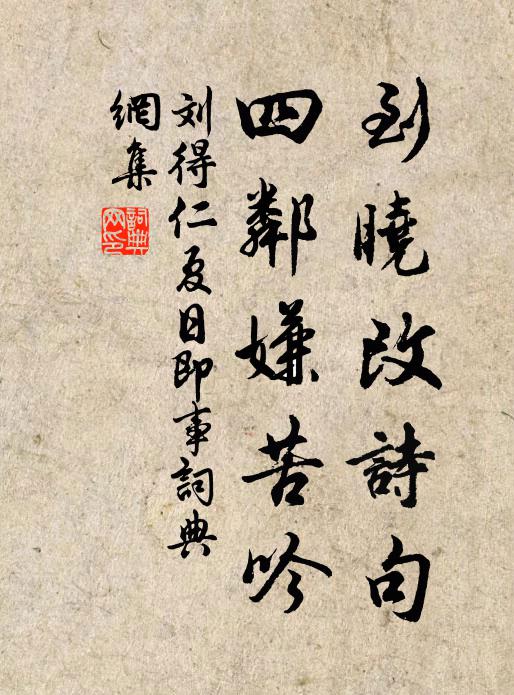 到曉改詩句
四鄰嫌苦吟
刘得仁夏日即事詞典
網集
詞典
网印